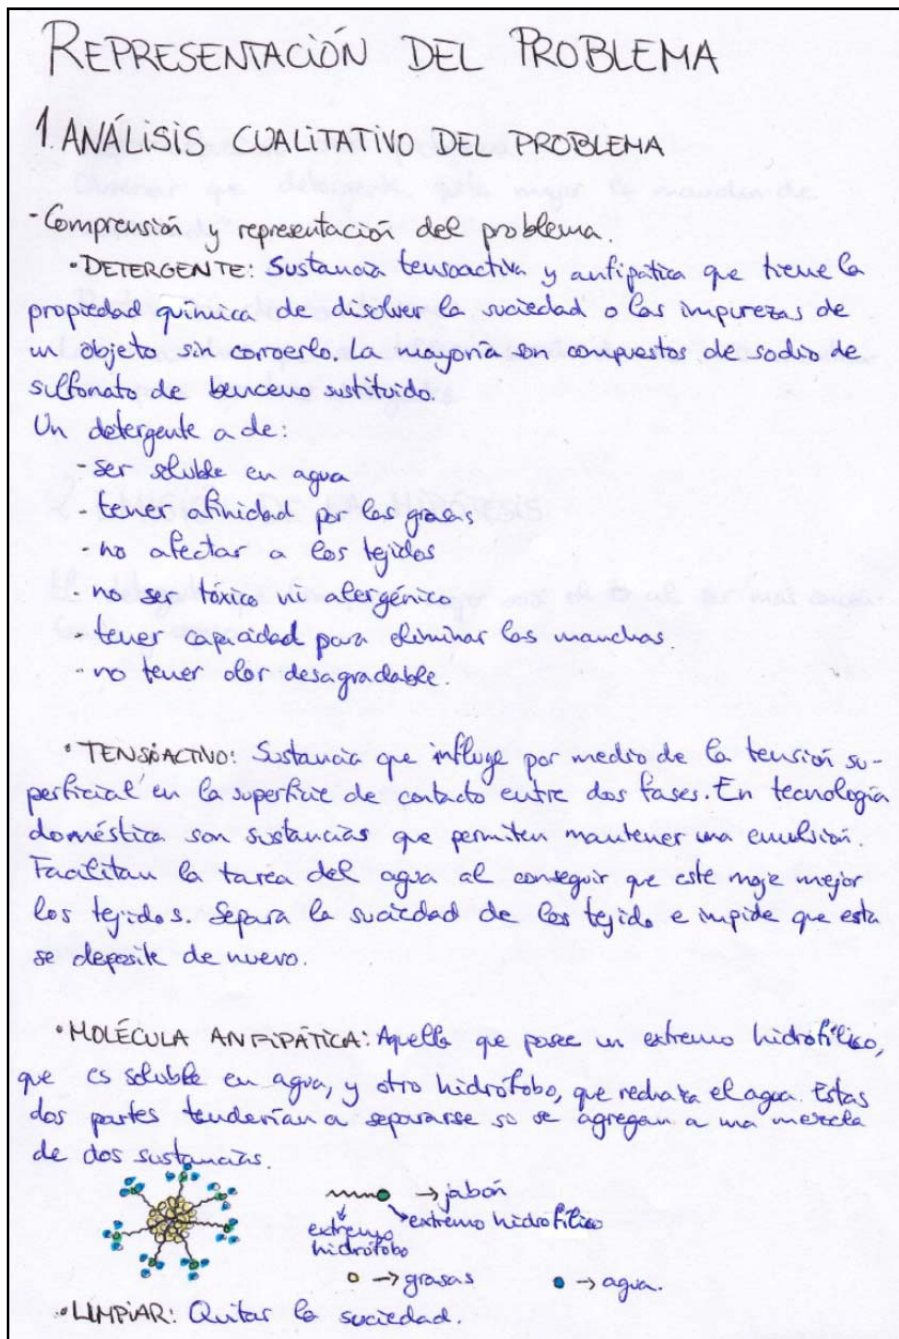 REPRESENTACIÓN DEL PROBLEMA
1. ANÁLISIS CUALITATIVO DEL PROBLEMA
- Comprensión y representación del problema.
• DETERGENTE: Sustancia tensoactiva y anfipática que tiene la
propiedad química de disolver la suciedad o las impurezas de
un objeto sin corroerlo. La mayoría son compuestos de sodio de
sulfonato de benceno sustituido.
Un detergente a de:
- ser soluble en agua
- tener afinidad por las grasas
- no afectar a los tejidos
- no ser tóxico ni alergénico
- tener capacidad para eliminar las manchas.
- no tener olor desagradable.
• TENSOACTIVO: Sustancia que influye por medio de la tensión su-
perficial en la superficie de contacto entre dos fases. En tecnología
doméstica son sustancias que permiten mantener una emulsión.
Facilitan la tarea del agua al conseguir que este moje mejor
los tejidos. Separa la suciedad de los tejido e impide que esta
se deposite de nuevo.
• MOLÉCULA ANFIPÁTICA: Aquella que posee un extremo hidrofílico,
que es soluble en agua, y otro hidrófobo, que rechaza el agua. Estas
dos partes tenderían a separarse si se agregan a una mezcla
de dos sustancias.
→ jabón
extremo hidrofílico
extremo
hidrófobo
→ grasas
→ agua.
• LIMPIAR: Quitar la suciedad.